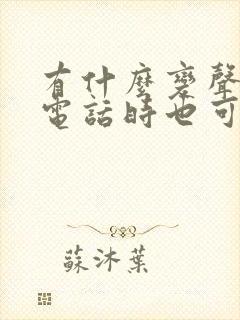 有什麼變聲
電話時也可
蘇沐葉